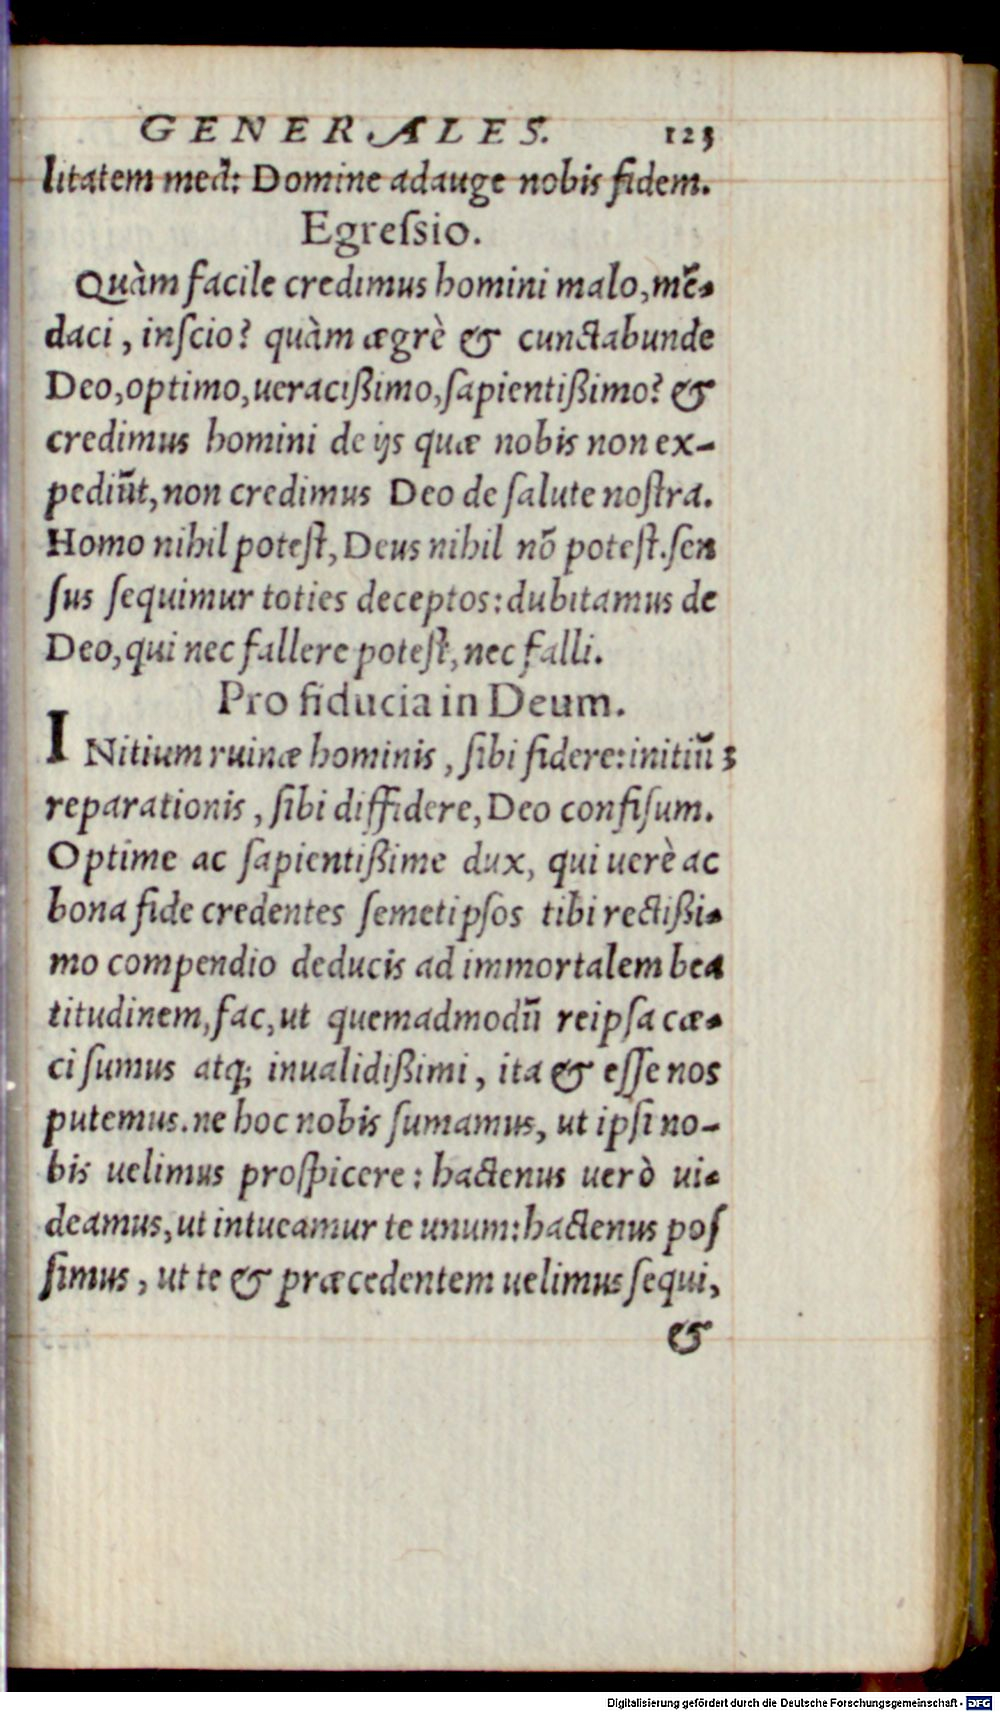 GENERALES. 123
litatem meā: Domine adauge nobis fidem.
Egreſsio.
Quàm facile credimus homini malo, mē-
daci, inſcio? quàm ægrè & cunctabunde
Deo, optimo, ueracißimo, ſapientißimo? &
credimus homini de ijs quæ nobis non ex-
pediūt, non credimus Deo de ſalute noſtra.
Homo nihil poteſt, Deus nihil nō poteſt. ſen
ſus ſequimur toties deceptos: dubitamus de
Deo, qui nec fallere poteſt, nec falli.
Pro fiducia in Deum.
INitium ruinæ hominis, ſibi fidere: initiū
reparationis, ſibi diffidere, Deo confiſum.
Optime ac ſapientißime dux, qui uerè ac
bona fide credentes ſemetipſos tibi rectißi-
mo compendio deducis ad immortalem bea
titudinem, fac, ut quemadmodū reipſa cæ-
ci ſumus atq; inualidißimi, ita & eſſe nos
putemus. ne hoc nobis ſumamus, ut ipſi no-
bis uelimus proſpicere: hactenus uerò ui-
deamus, ut intueamur te unum: hactenus poſ
ſimus, ut te & præcedentem uelimus ſequi,
&
Digitalisierung gefördert durch die Deutsche Forschungsgemeinschaft - DFG